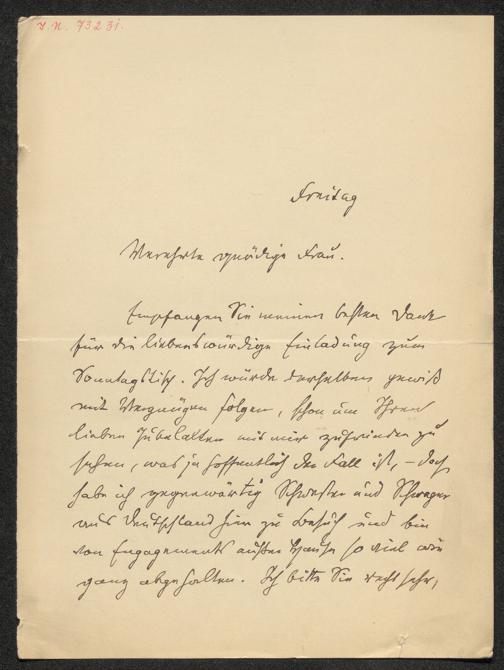 I. N. 73231.
Freitag
Verehrte gnädige Frau.
Empfangen Sie meinen besten Dank
für die liebenswürdige Einladung zum
Sonntagstisch. Ich würde derselben gewiß
mit Vergnügen folgen, schon um Ihren
lieben mit mir zufrieden zu
sehen, was ja hoffentlich der Fall ist, – doch
habe ich gegenwärtig Schwester und Schwager
aus Deutschland hier zu Besuch und bin
von Engagements außer Hause so viel wie
ganz abgehalten. Ich bitte Sie recht sehr,